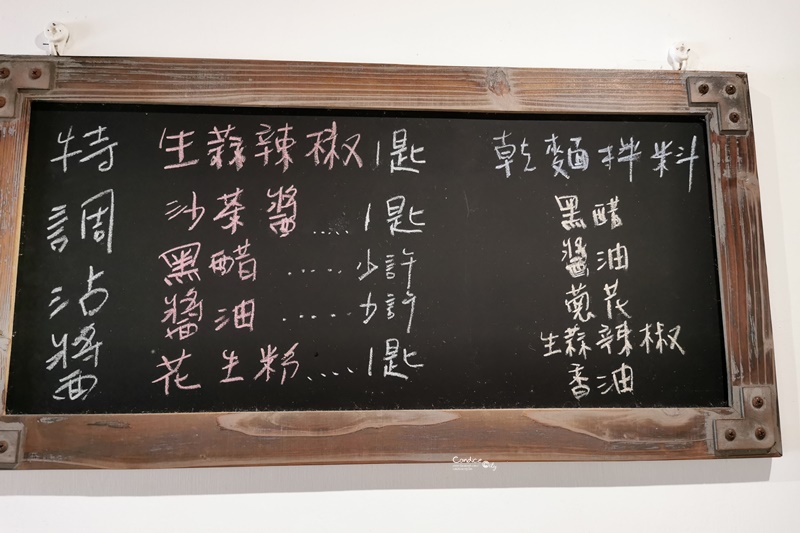 特調沾醬
生蒜辣椒1匙
沙茶醬.....1匙
黑醋.....少許
醬油......少許
花生粉.....1匙
乾麵拌料
黑醋
醬油
蔥花
生蒜辣椒
香油